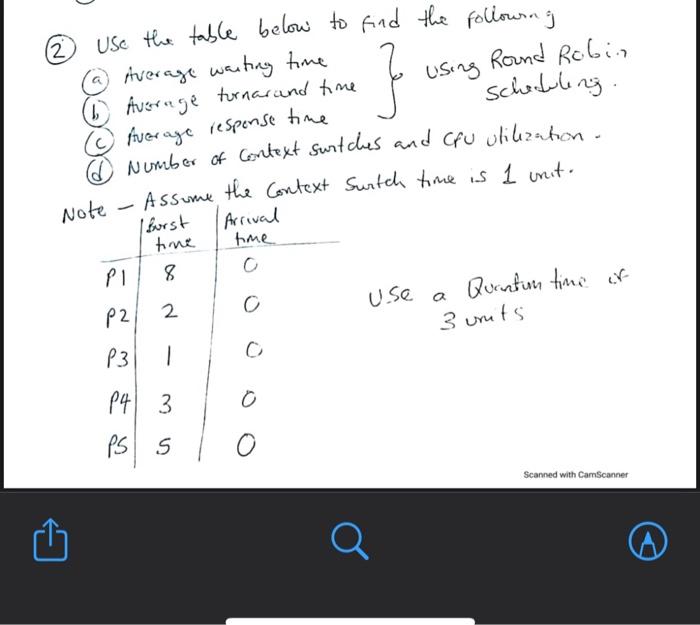 ② Use the table below to find the following
ⓐ Average waiting time
ⓑ Average turnaround time
ⓒ Average response time
} using Round Robin
scheduling.
ⓓ Number of Context switches and CPU utilization.
Note - Assume the Context Switch time is 1 unit.
Burst time | Arrival time
P1 8 0
P2 2 0
P3 1 0
P4 3 0
P5 5 0
Use a Quantum time of
3 units
Scanned with CamScanner